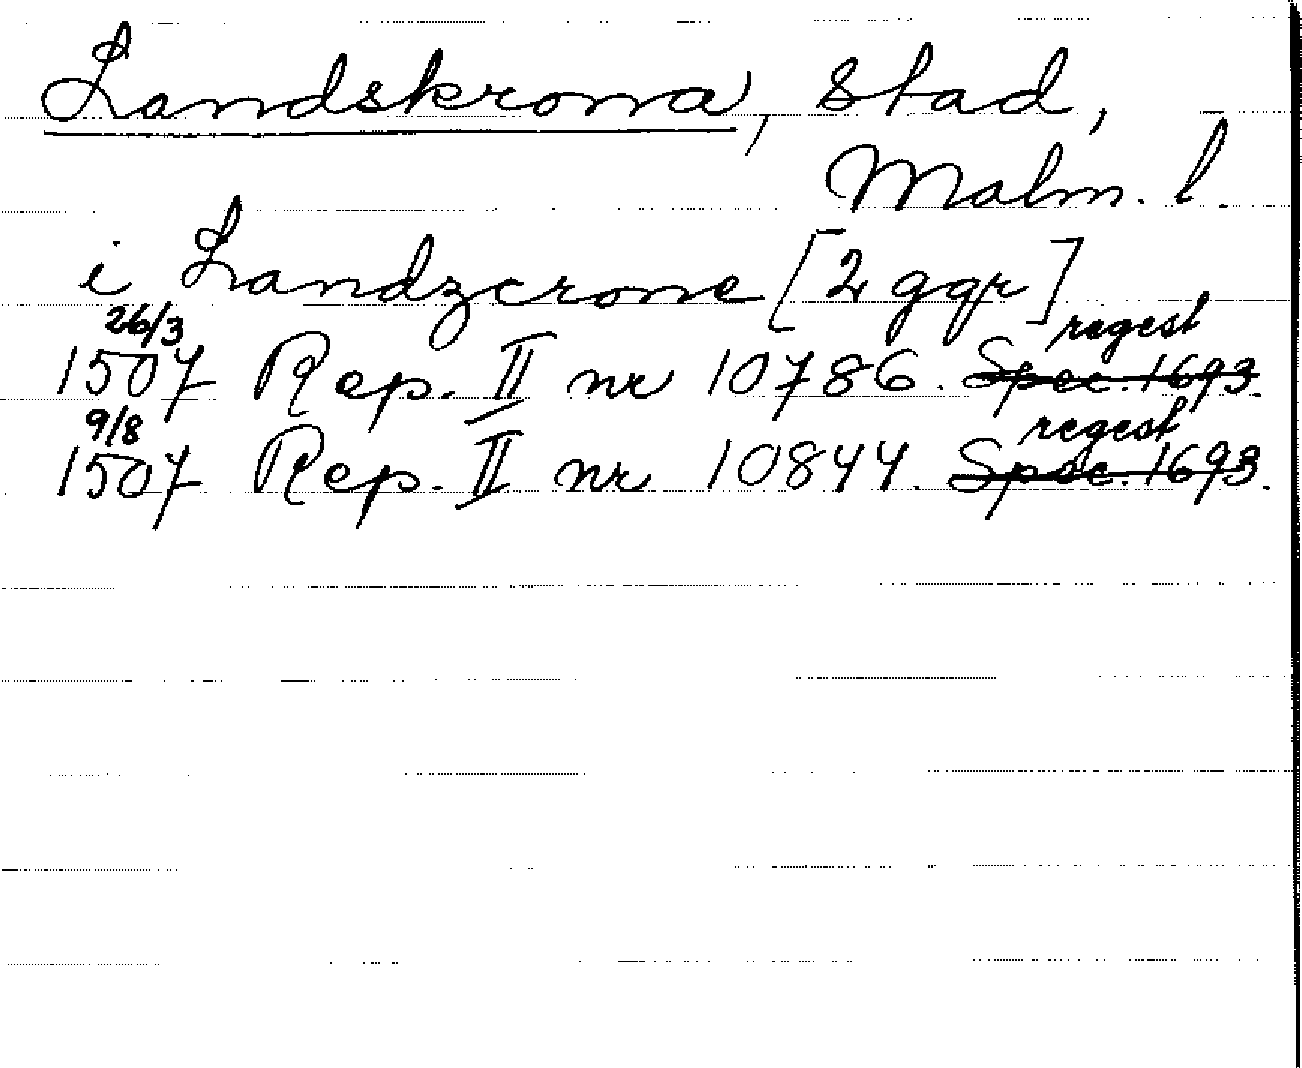 Landskrona, Stad,
Malm. l.
i Landzcrone [2 ggr]
26/3 regest
1507 Rep. II nr 10786. Spec. 1693.
9/8 regest
1507 Rep. II nr 10844. Spec. 1693.